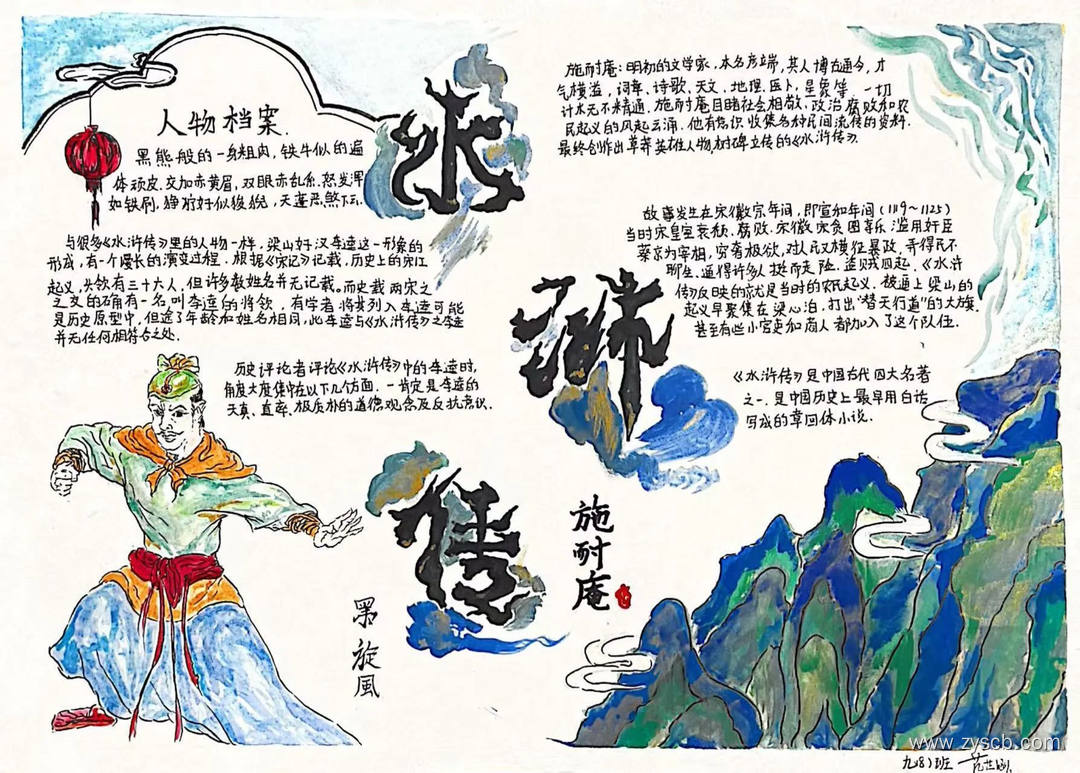 人物档案.
黑熊般的一身粗肉，铁牛似的遍
体顽皮.交加赤黄眉，双眼赤乱系.怒发浑
如铁刷，狰狞好似狻猊，天蓬恶煞下云.
与很多《水浒传》里的人物一样，梁山好汉李逵这一形象的
形成，有一个漫长的演变过程.根据《宋记》记载，历史上的宋江
起义，头领有三十六人，但许多数姓名并无记载.而史载两宋之
之交的确有一名叫李逵的将领.有学者将其列入李逵可能
是历史原型中，但这了年龄和姓名相同，此李逵与《水浒传》之李逵
并无任何相符合之处.
历史评论者评论《水浒传》中的李逵时，
角度大度集中在以下几个方面.一肯定是李逵的
天真、直率、极质朴的道德观念及反抗意识.
水
浒
传
黑旋風
施耐庵：明初的文学家.本名彦端，其人博古通今，才
气横溢，词章、诗歌、天文、地理、医卜、星象等，一切
计术无不精通.施耐庵目睹社会相散、政治腐败和农
民起义的风起云涌.他有意识收集各种民间流传的资料.
最终创作出草莽英雄人物，树碑立传的《水浒传》.
故事发生在宋徽宗年间，即宣和年间（1119~1125）
当时宋皇室衰颓.腐败.宋徽宗贪图享乐滥用奸臣
蔡京为宰相，穷奢极欲，对人民横征暴政，弄得民不
聊生.逼得许多人挺而走险.盗贼四起.《水浒
传》反映的就是当时的农民起义.被逼上梁山的
起义早聚集在梁心泊，打出"替天行道"的大旗.
甚至有些小官吏和商人都加入了这个队伍.
《水浒传》是中国古代四大名著
之一.是中国历史上最早用白话
写成的章回体小说.
施耐庵
www.zyscb.com
九(8)班